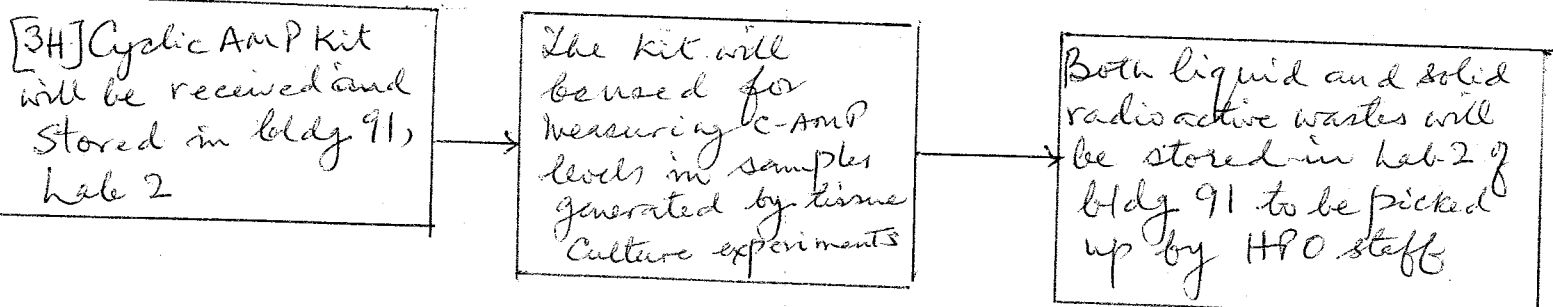 [3H]Cyclic AMP Kit
will be received and
Stored in bldg 91,
Lab 2
The kit will
be used for
Measuring C-AMP
levels in samples
generated by tissue
Culture experiments
Both liquid and solid
radioactive wastes will
be stored in Lab 2 of
bldg 91 to be picked
up by HPO staff